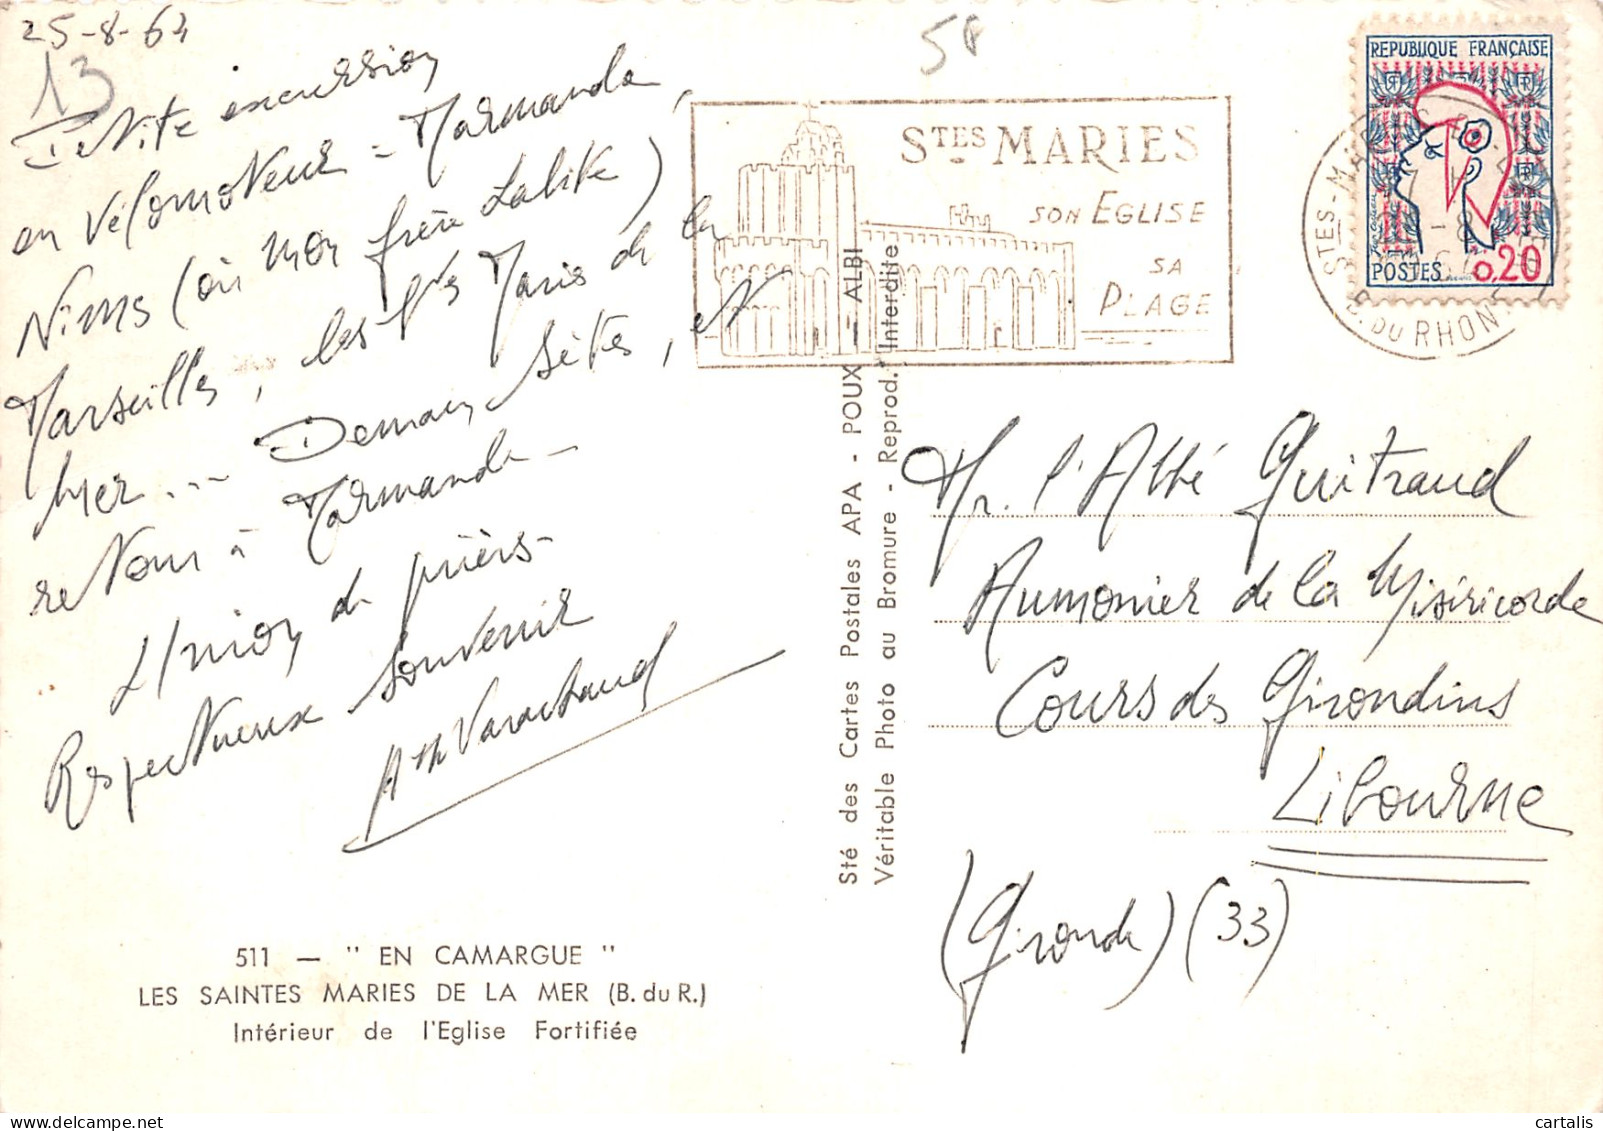 25-8-64
13
Petite excursion
en vélomoteur - Marmande,
Nimes (où mon frère habite)
Marseille, les Stes Maries de la
Mer... Demain, Sètes, et
retour à Marmande -
Union de prières -
Respectueux souvenir
511 — " EN CAMARGUE "
LES SAINTES MARIES DE LA MER (B. du R.)
Intérieur de l'Eglise Fortifiée
Sté des Cartes Postales APA - POUX - ALBI
Véritable Photo au Bromure - Reprod. Interdite
STES MARIES
SON EGLISE
SA
PLAGE
REPUBLIQUE FRANÇAISE
POSTES 0.20
STES-MA
B. DU RHONE
Mr. l'Abbé Guitraud
Aumonier de la Miséricorde
Cours des Girondins
Libourne
(Gironde) (33)
cartalis
www.delcampe.net